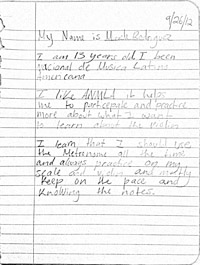 9/26/12
My Name is
I am 13 years old, I been
nacional de Musica Latino
Americana
I like it helps
me to participate and practice
more about what I want
to learn about the
I learn that I should use
the Metronome all the time
and always practice on my
scale and and mostly
keep on the pace and
knowing the notes.